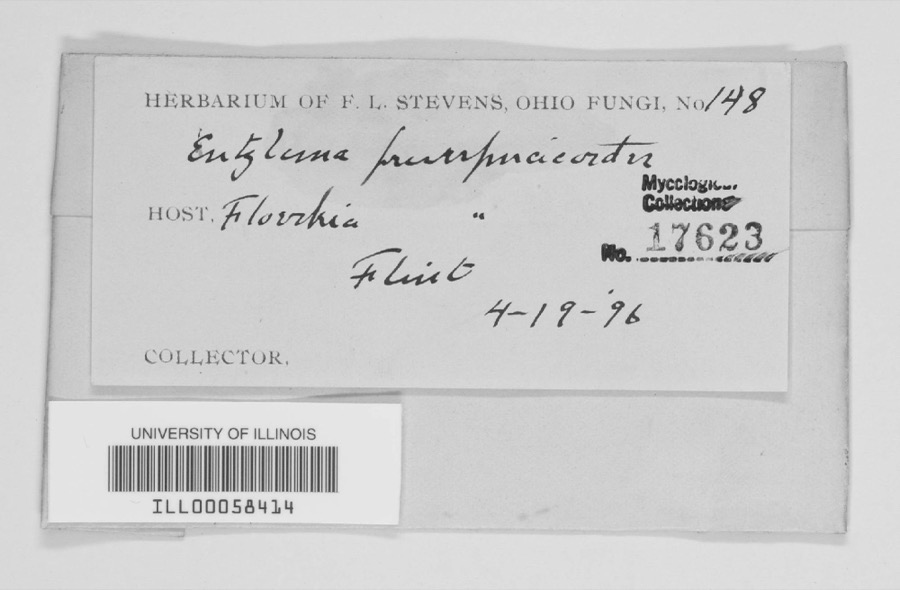 HERBARIUM OF F. L. STEVENS, OHIO FUNGI, No 148
Entyloma
Mycological
Collections
HOST, Floerkia "
No. 17623
Flint
4-19-'96
COLLECTOR,
UNIVERSITY OF ILLINOIS
ILL00058414